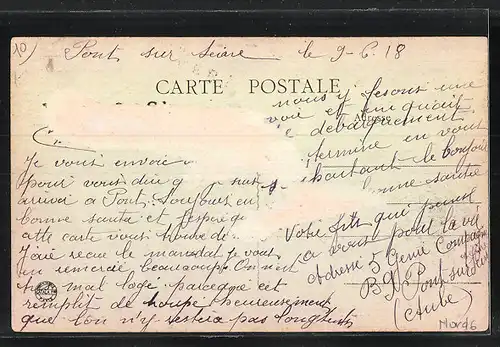 10)
Pont sur Seine le 9-6.18
CARTE POSTALE
Adresse
Je vous envoie
pour vous dire q suis
arriver a Pont. toujours en
bonne santé et j'espère q
cette carte vous trouve de
J'aie recue le mandat je vous
en remercie beaucoupt On n'est
mal logé parceque c'est
remplit de troupe heureusement
que l'on n'y restera pas longtemps
nous y fesons une
voie et un quait
de debarquement
termine en vous
souhaitant le bonjour
bonne santée
Votre fils qui pense
a vous pour la vie
Adresse 5 Genie Compagnie
B.G.P. Pont sur Seine
(Aube)
Nord 6